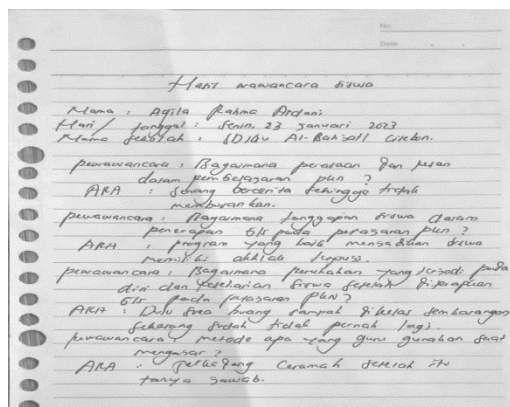 No.
Date
Hasil wawancara siswa
Nama : Aqila Rahma Ardani
Hari / tanggal : Senin, 23 januari 2023
Nama Sekolah : SDIQu Al-Bahjah Cirebon.
pewawancara : Bagaimana perasaan dan kesan
dalam pembelajaran pkn ?
ARA : Senang bercerita sehingga tidak
membosankan.
pewawancara : Bagaimana tanggapan siswa dalam
penerapan 5 pada pelajaran pkn ?
ARA : program yang baik menjadikan siswa
memiliki akhlak
pewawancara : Bagaimana perubahan yang terjadi pada
diri dan keseharian siswa setelah diterapkan
5 pada pelajaran PKN ?
ARA : Dulu suka buang sampah dikelas sembarangan
sekarang sudah tidak pernah lagi.
pewawancara : metode apa yang guru gunakan saat
mengajar ?
ARA : terkadang Ceramah setelah itu
tanya jawab.